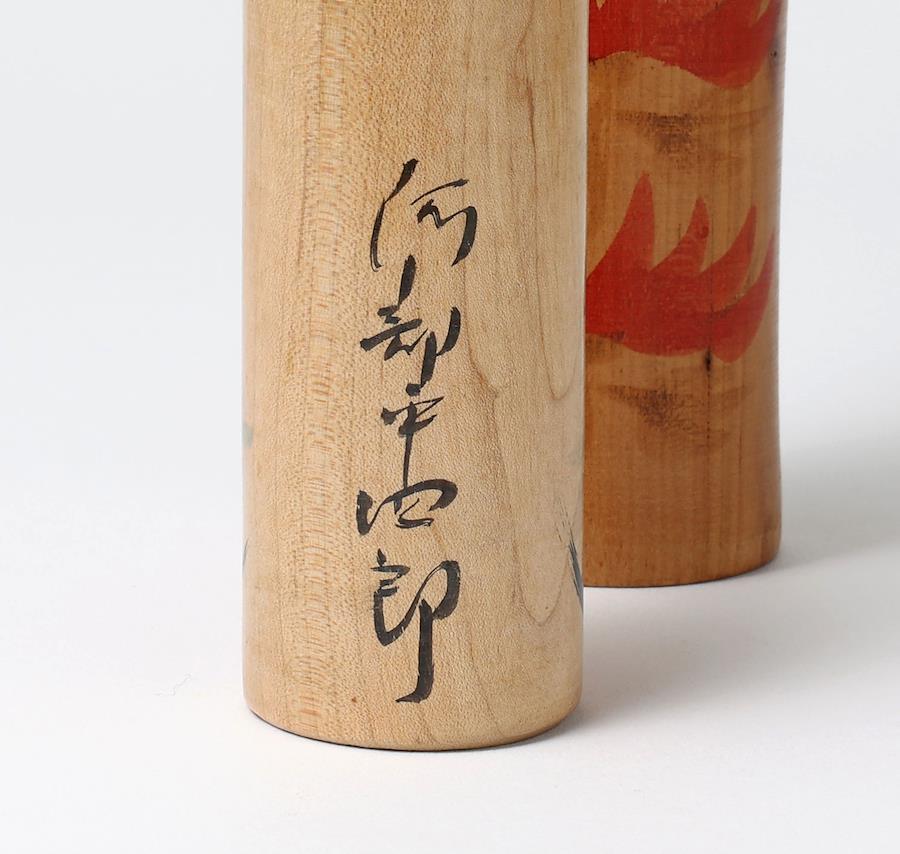 阿部平四郎